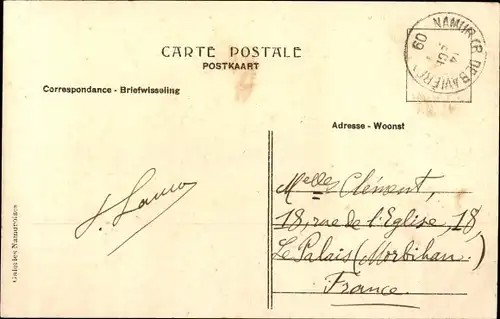 NAMUR (R. DE BAVIÈRE)
09
14
CARTE POSTALE
POSTKAART
Correspondance - Briefwisseling
Adresse - Woonst
Melles Clément,
18, rue de l'Eglise, 18,
Le Palais (Morbihan.)
France.
Galeries Namuroises